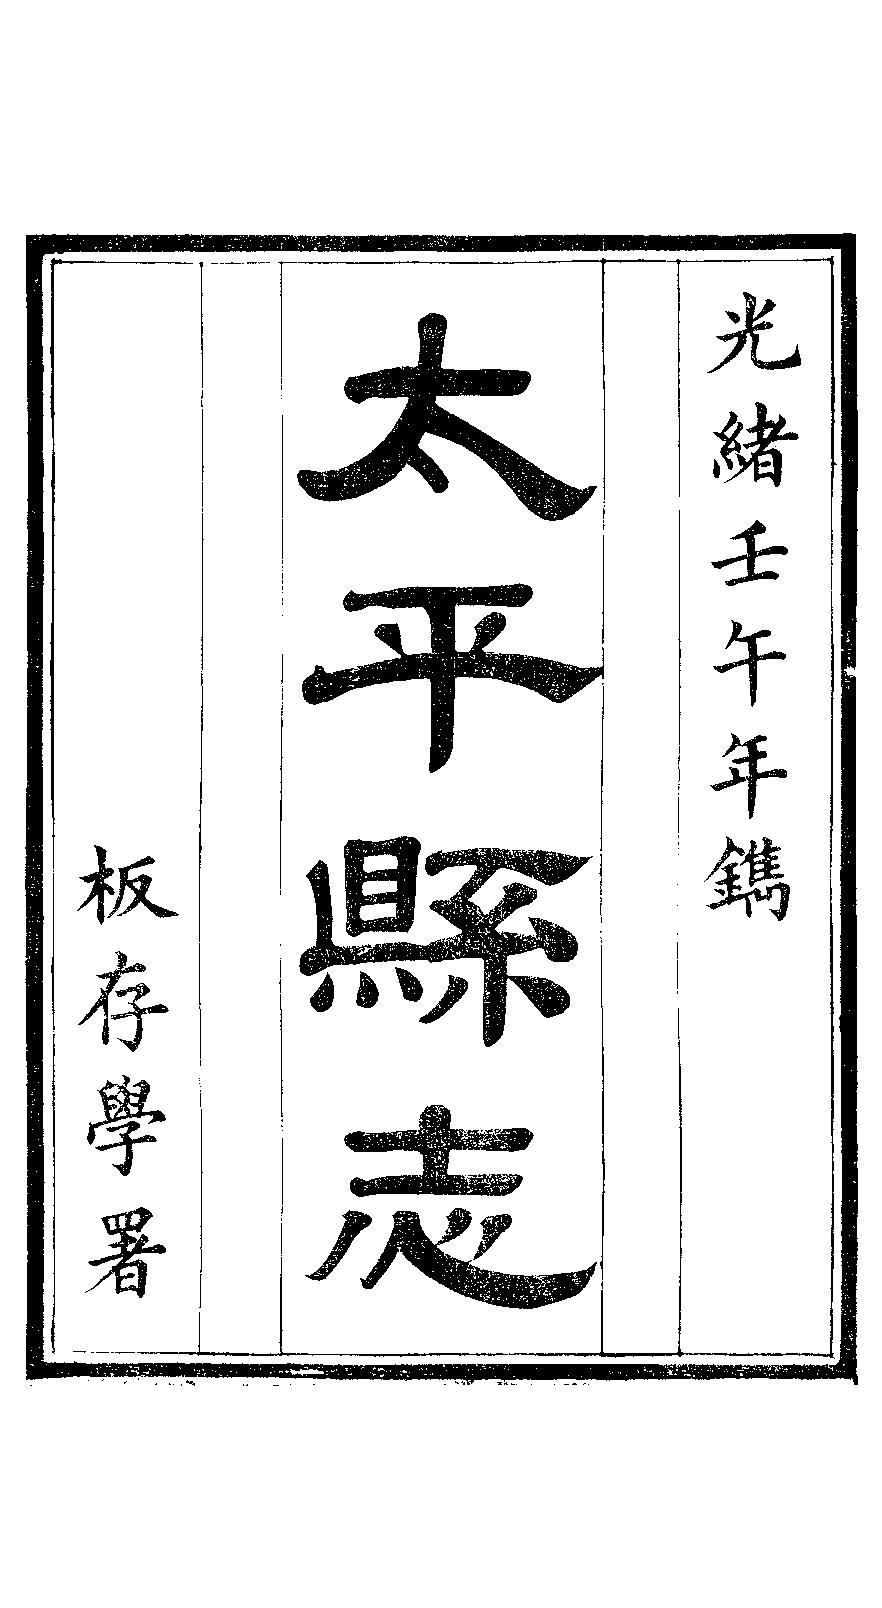 光緒壬午年鐫
太平縣志
板存學署